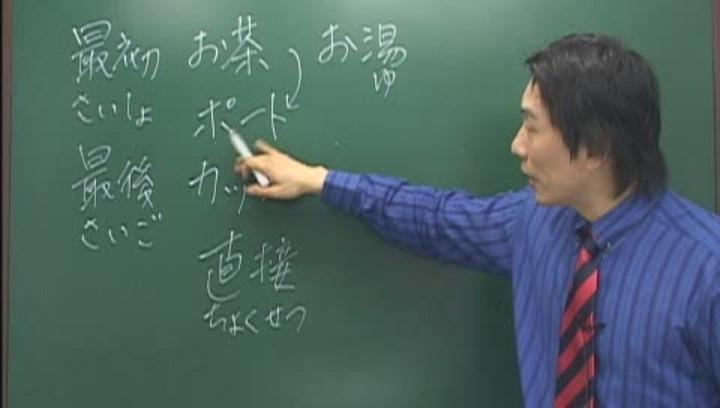 最初 お茶 お湯
さいしょ ポート ゆ
最後 カッ
さいご
直接
ちょくせつ